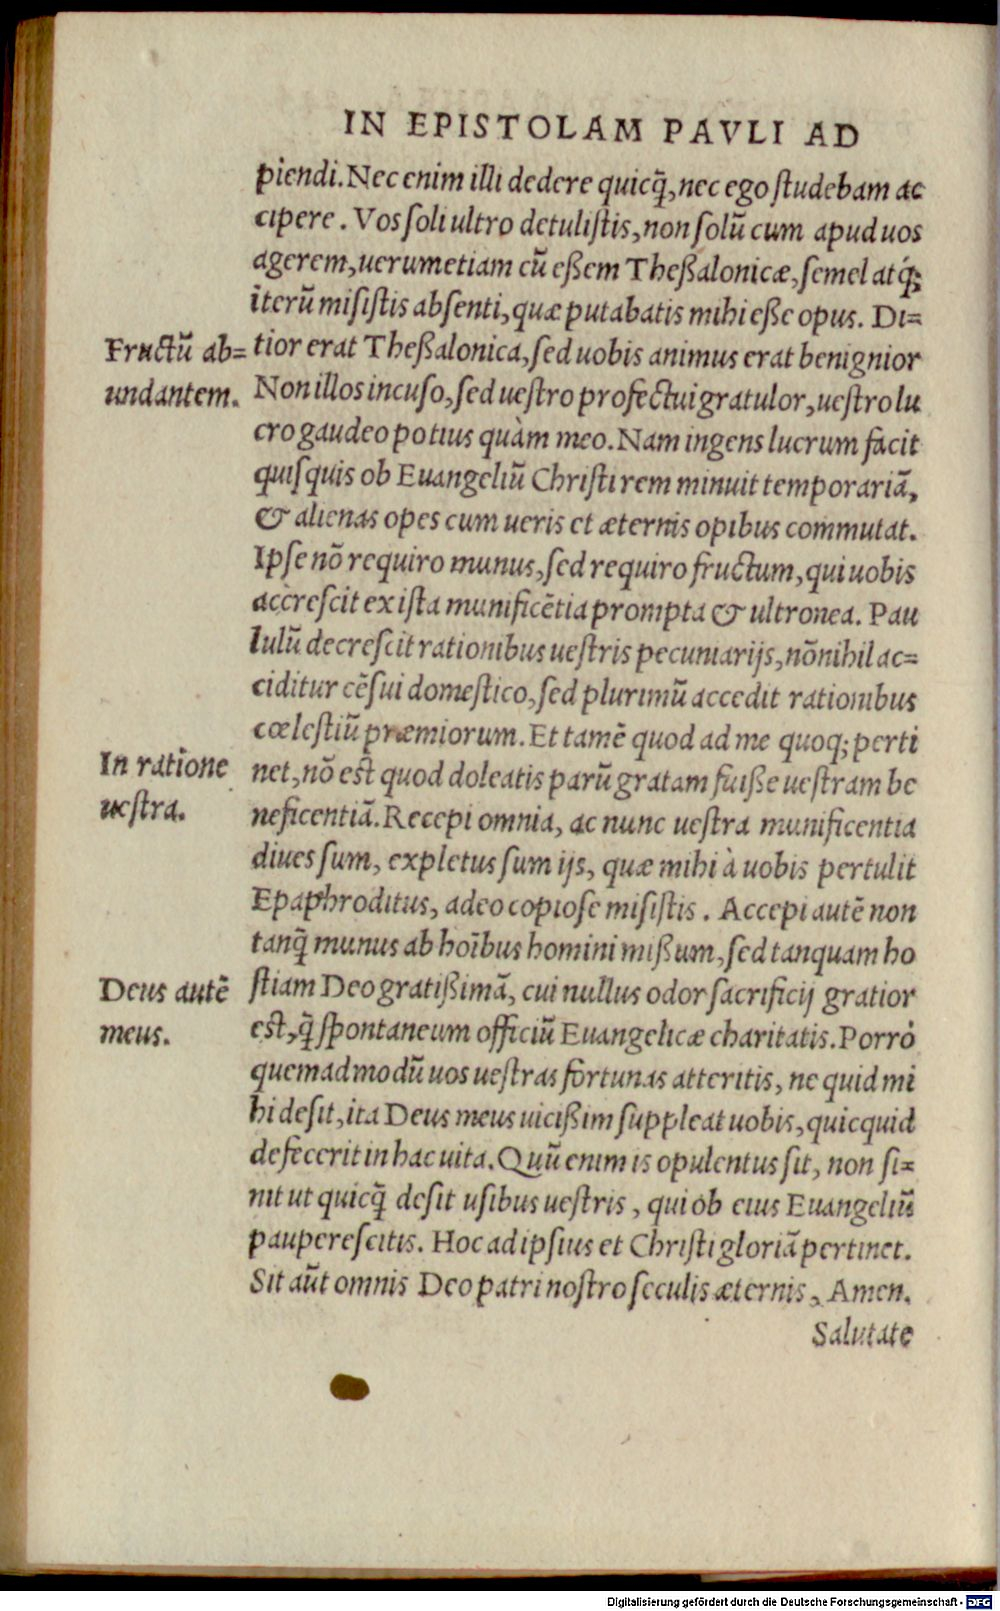 IN EPISTOLAM PAVLI AD
piendi. Nec enim illi dedere quicq̃, nec ego ſtudebam ac
cipere. Vos ſoli ultro detuliſtis, non ſolũ cum apud uos
agerem, uerumetiam cũ eßem Theßalonicæ, ſemel atq́;
iterũ miſiſtis abſenti, quæ putabatis mihi eße opus. Di=
Fructũ ab= tior erat Theßalonica, ſed uobis animus erat benignior
undantem. Non illos incuſo, ſed ueſtro profectui gratulor, ueſtro lu
cro gaudeo potius quàm meo. Nam ingens lucrum facit
quiſquis ob Euangeliũ Chriſti rem minuit temporariã,
& alienas opes cum ueris et æternis opibus commutat.
Ipſe nõ requiro munus, ſed requiro fructum, qui uobis
accreſcit ex iſta munificẽtia prompta & ultronea. Pau
lulũ decreſcit rationibus ueſtris pecuniarijs, nõnihil ac=
ciditur cẽſui domeſtico, ſed plurimũ accedit rationibus
cœleſtiũ præmiorum. Et tamẽ quod ad me quoq; perti
In ratione net, nõ eſt quod doleatis parũ gratam fuiße ueſtram be
ueſtra. neficentiã. Recepi omnia, ac nunc ueſtra munificentia
diues ſum, expletus ſum ijs, quæ mihi à uobis pertulit
Epaphroditus, adeo copioſe miſiſtis. Accepi autẽ non
tanq̃ munus ab hoĩbus homini mißum, ſed tanquam ho
Deus autẽ ſtiam Deo gratißimã, cui nullus odor ſacrificij gratior
meus. eſt, q̃ ſpontaneum officiũ Euangelicæ charitatis. Porrò
quemadmodũ uos ueſtras fortunas atteritis, ne quid mi
hi deſit, ita Deus meus uicißim ſuppleat uobis, quicquid
defecerit in hac uita. Quũ enim is opulentus ſit, non ſi=
nit ut quicq̃ deſit uſibus ueſtris, qui ob eius Euangeliũ
paupereſcitis. Hoc ad ipſius et Chriſti gloriã pertinet.
Sit aũt omnis Deo patri noſtro ſeculis æternis, Amen.
Salutate
Digitalisierung gefördert durch die Deutsche Forschungsgemeinschaft - DFG